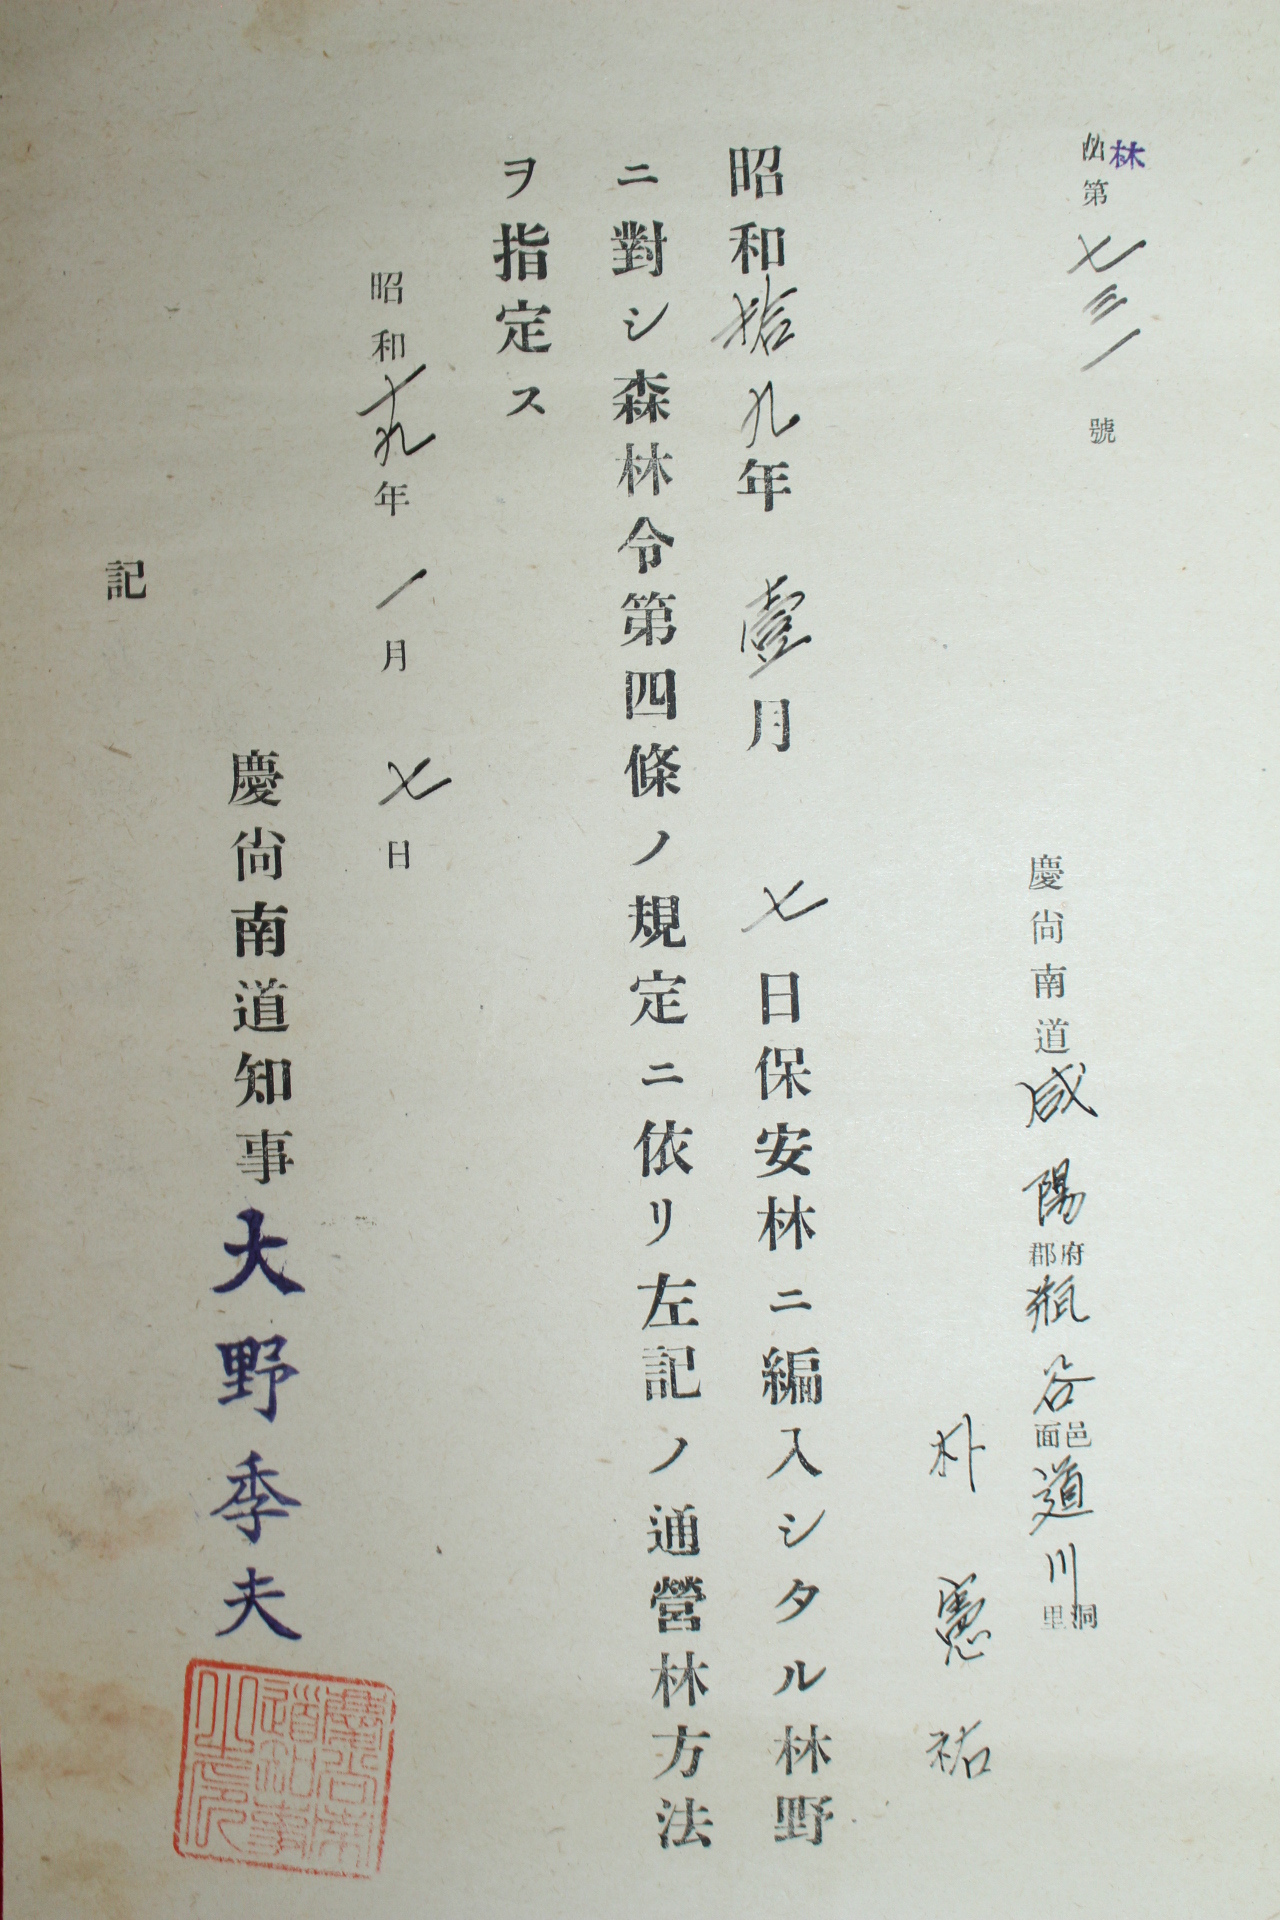 林第七三一號
慶尙南道咸陽府郡瓶谷邑面道川洞里
朴憲祐
昭和拾九年壹月七日保安林ニ編入シタル林野
ニ對シ森林令第四條ノ規定ニ依リ左記ノ通營林方法
ヲ指定ス
昭和十九年一月七日
慶尙南道知事大野季夫
慶尙南
道知事
之官印
記